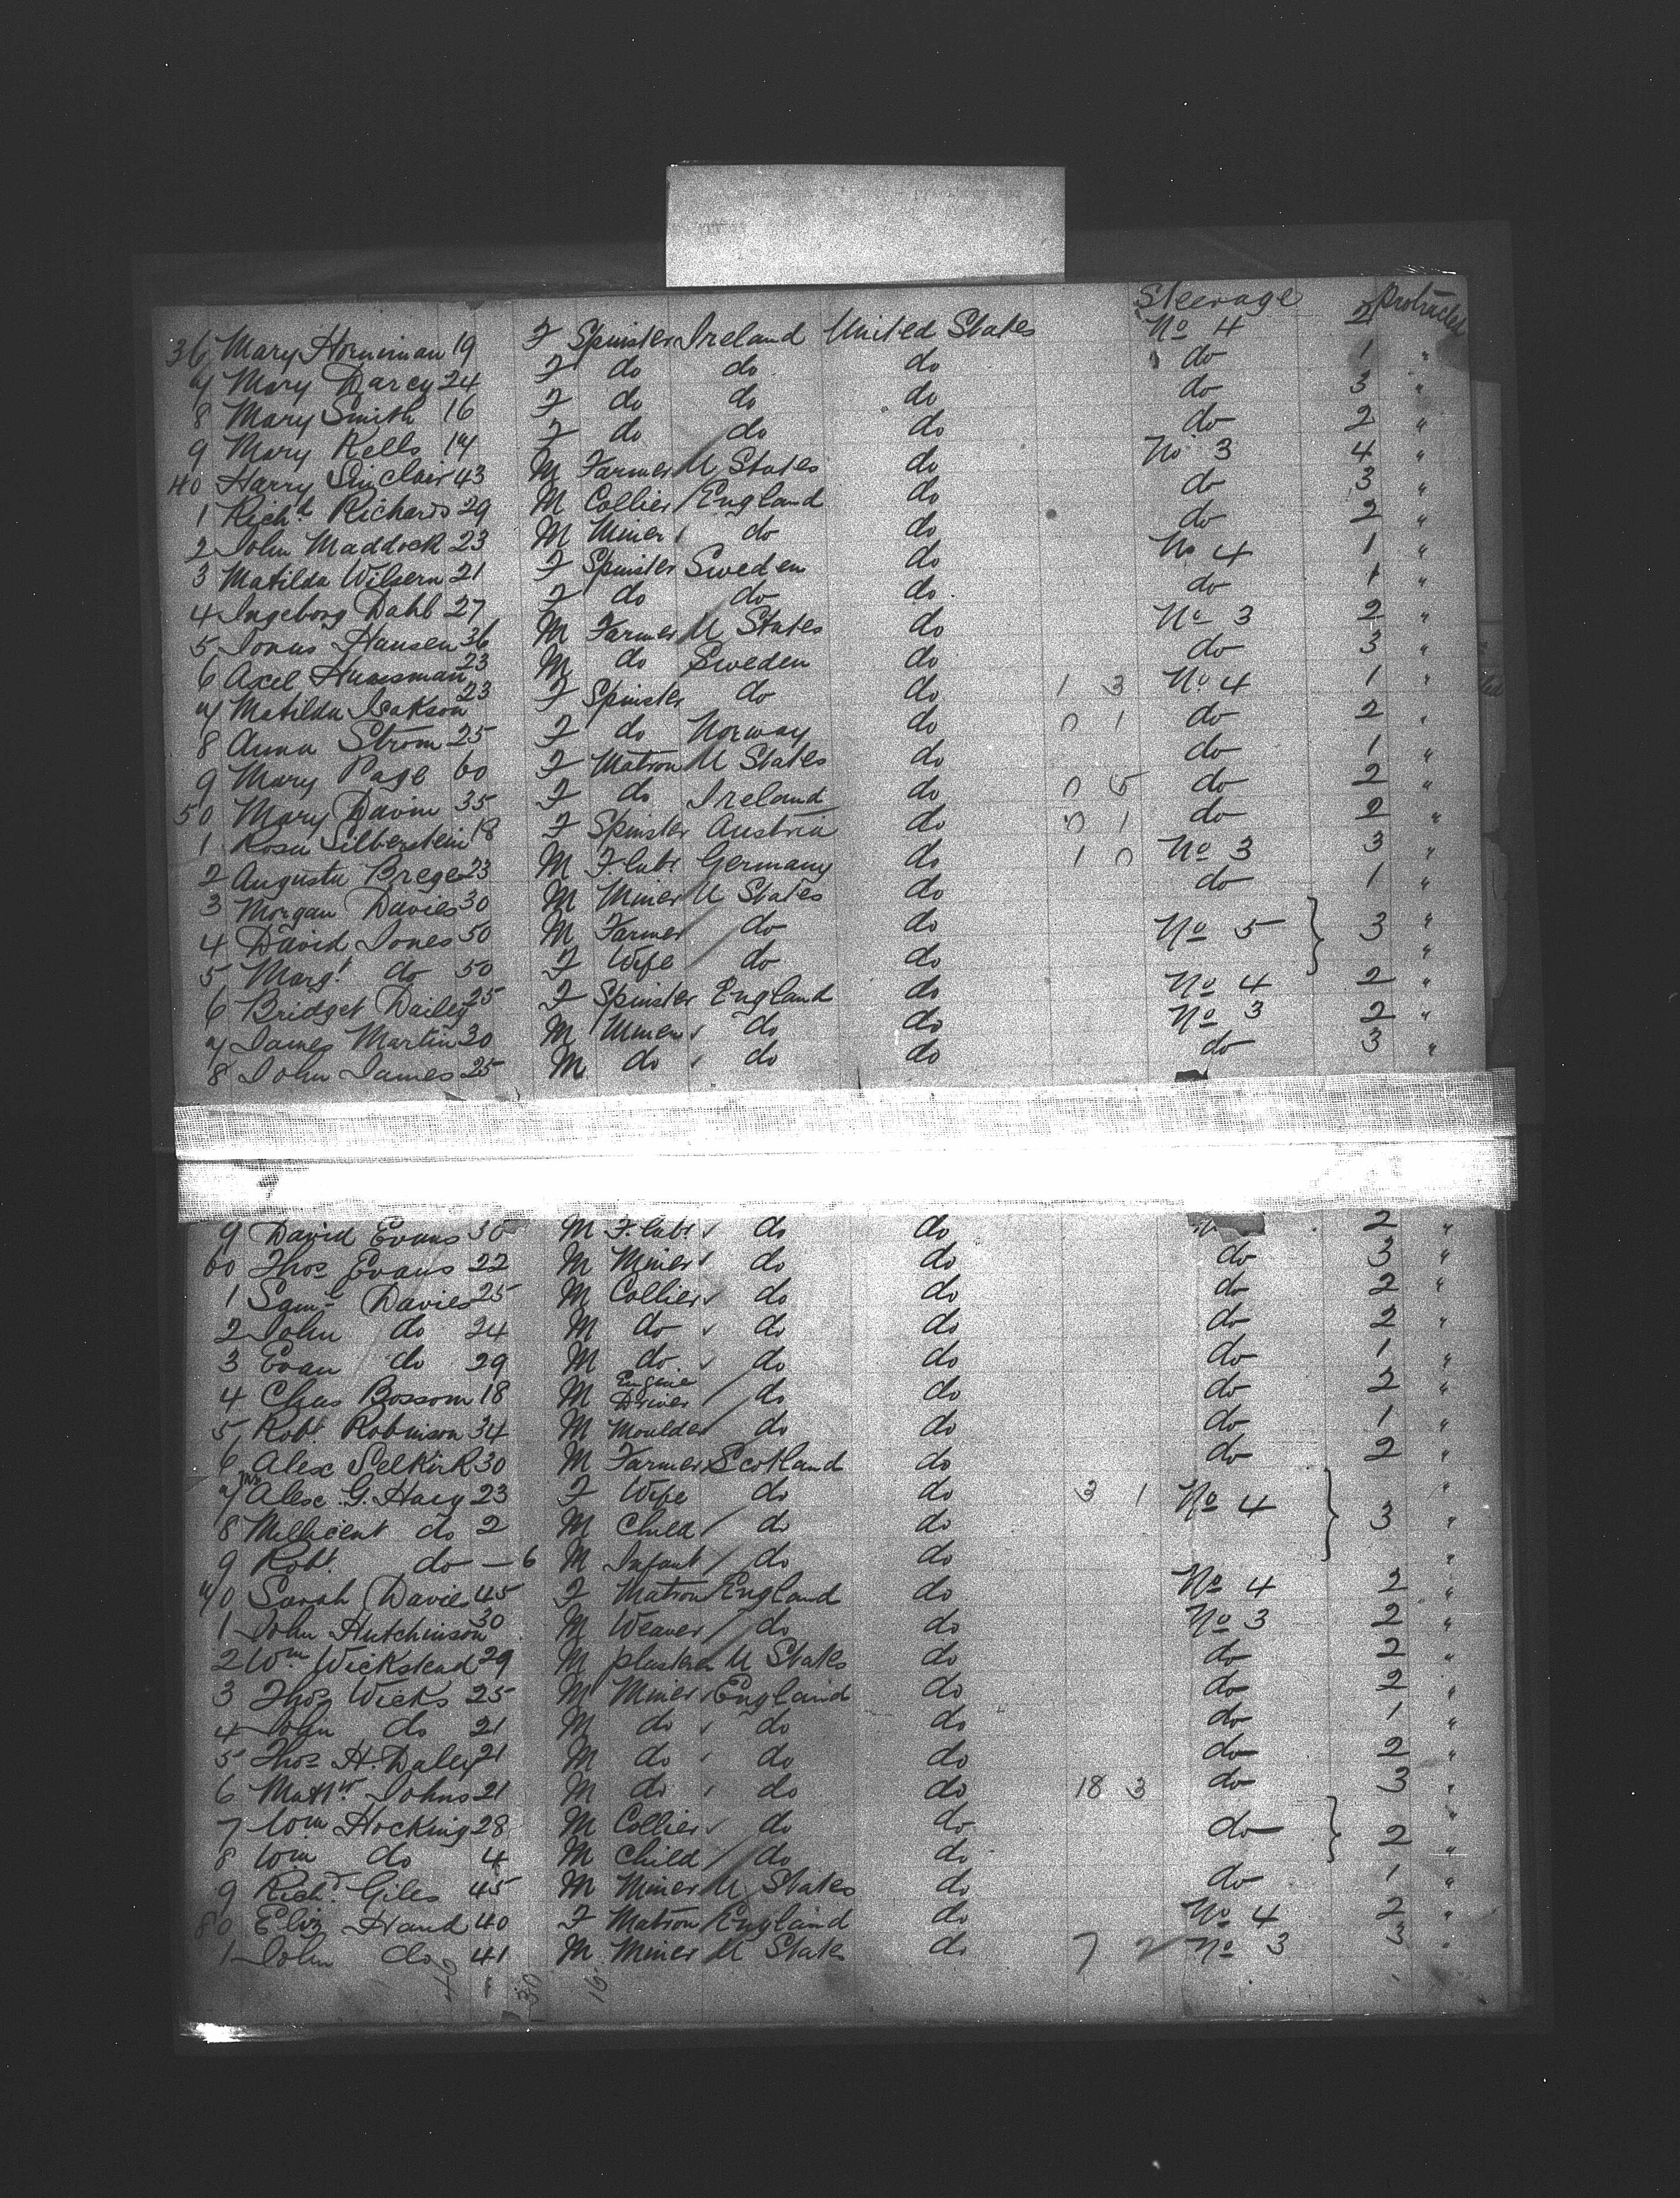 Steerage
36 Mary Horniman 19 F Spinster Ireland United States No 4 2 Protracted
7 Mary Darcy 24 F do do do do 1 "
8 Mary Smith 16 F do do do do 3 "
9 Mary Kells 14 F do do do do 2 "
40 Harry Sinclair 43 M Farmer U States do No 3 4 "
1 Richd Richards 29 M Collier England do do 3 "
2 John Maddock 23 M Miner do do do 2 "
3 Matilda Wilsern 21 F Spinster Sweden do No 4 1 "
4 Ingeborg Dahl 27 F do do do do 1 "
5 Jonas Hansen 36 M Farmer U States do No 3 2 "
6 Axel 23 M do Sweden do do 3 "
7 Matilda Isakson 23 F Spinster do do 1 3 No 4 1 "
8 Anna Strom 25 F do Norway do 0 1 do 2 "
9 Mary Page 60 F Matron U States do do 1 "
50 Mary Davin 35 F do Ireland do 0 5 do 2 "
1 Rosa Silberstein 18 F Spinster Austria do 0 1 do 2 "
2 Augusta Brege 23 M F. labr Germany do 1 0 No 3 3 "
3 Morgan Davies 30 M Miner U States do do 1 "
4 David Jones 50 M Farmer do do No 5 3 "
5 Margt do 50 F Wife do do "
6 Bridget Dailey 25 F Spinster England do No 4 2 "
7 James Martin 30 M Miner do do No 3 2 "
8 John James 25 M do do do do 3 "
9 David Evans 30 M F. labr do do 2 "
60 Thos Evans 22 M Miner do do do 3 "
1 Saml Davies 25 M Collier do do do 2 "
2 John do 24 M do do do do 2 "
3 Evan do 29 M do do do do 1 "
4 Chas Bossom 18 M Engine Driver do do do 2 "
5 Robt Robinson 34 M Moulder do do do 1 "
6 Alex Selkirk 30 M Farmer Scotland do do 2 "
7 Mrs Alex. G. Haig 23 F Wife do do 3 1 No 4 3 "
8 Millicent do 2 M Child do do "
9 Robt do — 6 M Infant do do "
70 Sarah Davies 45 F Matron England do No 4 2 "
1 John Hutchinson 30 M Weaver do do No 3 2 "
2 Wm Wickstead 29 M plasterer U States do do 2 "
3 Thos Wicks 25 M Miner England do do 2 "
4 John do 21 M do do do do 1 "
5 Thos H. Daley 21 M do do do do 2 "
6 Mattw Johns 21 M do do do 18 3 do 3 "
7 Wm Hocking 28 M Collier do do do 2 "
8 Wm do 4 M Child do do "
9 Richd Giles 45 M Miner U States do do 1 "
80 Eliz Hand 40 F Matron England do No 4 2 "
1 John do 41 M Miner U States do 7 2 No 3 3 "